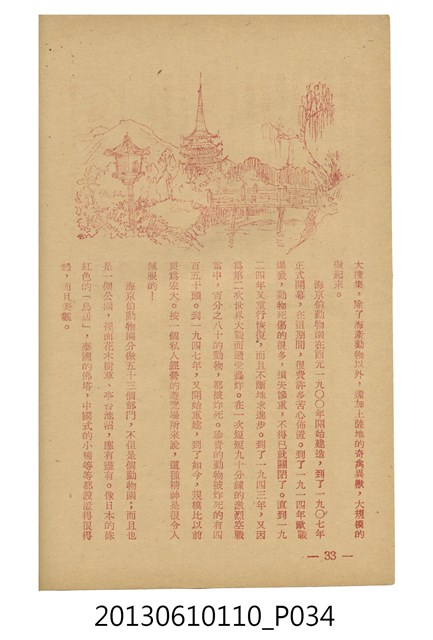 大搜集，除了海產動物以外，還加上陸地的奇禽異獸，大規模的
做起來。
海京伯動物園在西元一九〇〇年開始建造，到了一九〇七年
正式開幕，在這期間，很費許多苦心佈置。到了一九一四年歐戰
爆發，動物死傷的很多，損失慘重，不得已就關閉了。直到一九
二四年又重行恢復，而且不斷地求進步。到了一九四三年，又因
為第二次世界大戰而遭受轟炸。在一次短短九十分鐘的激烈空戰
當中，百分之八十的動物，都被炸死。珍貴的動物被炸死的有四
百五十頭。到一九四七年，又開始重建，到了如今，規模比以前
更為宏大。按一個私人經營的遊覽場所來說，這種精神是很令人
佩服的！
海京伯動物園分做五十三個部門，不但是個動物園；而且也
是一個公園，裡面花木樹草、亭台池沼，應有盡有。像日本的綠
紅色的「鳥居」，泰國的佛塔，中國式的小橋等等都設置得很得
體，而且美觀。
— 33 —
20130610110_P034